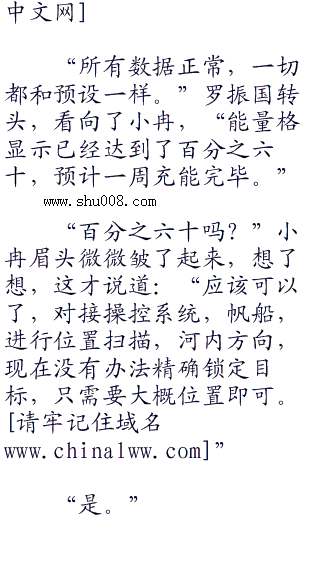 中文网]
“所有数据正常，一切
都和预设一样。”罗振国转
头，看向了小冉，“能量格
显示已经达到了百分之六
十，预计一周充能完毕。”
www.shu008.com
“百分之六十吗？”小
冉眉头微微皱了起来，想了
想，这才说道：“应该可以
了，对接操控系统，帆船，
进行位置扫描，河内方向，
现在没有办法精确锁定目
标，只需要大概位置即可。
[请牢记住域名
www.china1ww.com]”
“是。”